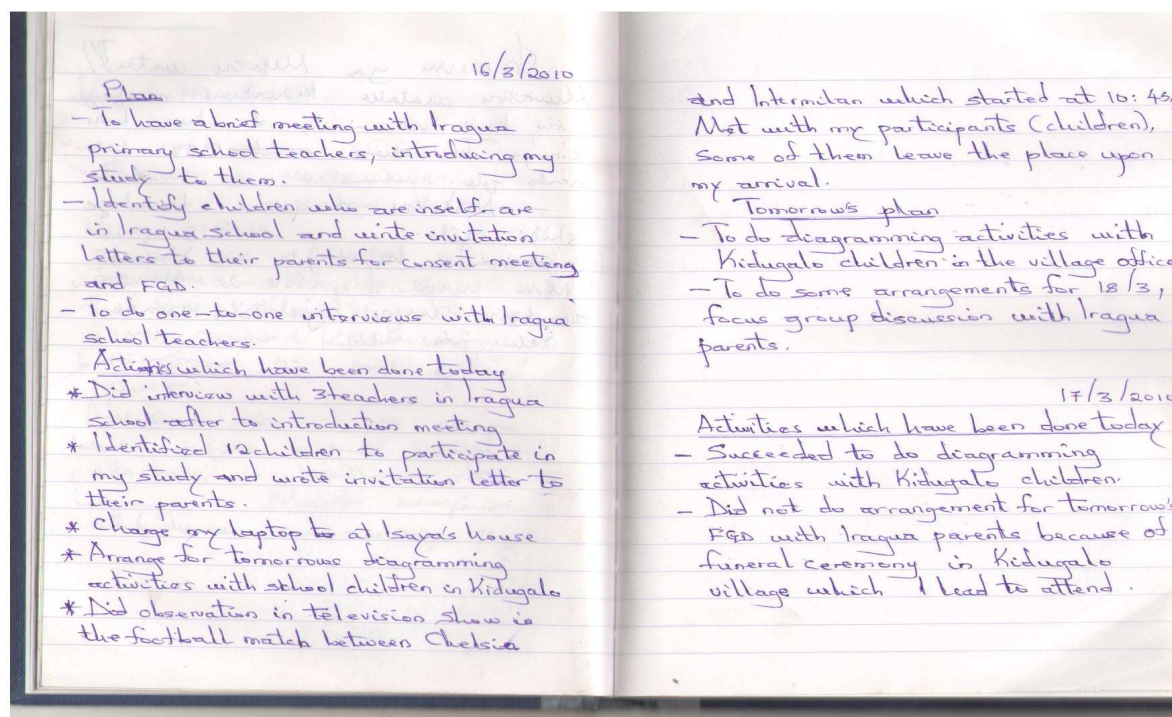 16/3/2010
Plan
- To have a brief meeting with Iragua
primary school teachers, introducing my
study to them.
- Identify children who are inself-are
in Iragua school and write invitation
letters to their parents for consent meeting
and FGD.
- To do one-to-one interviews with Iragua
school teachers.
Activities which have been done today
* Did interview with 3 teachers in Iragua
school after to introduction meeting
* Identified 12 children to participate in
my study and wrote invitation letter to
their parents.
* Charge my laptop to at Isaya's house
* Arrange for tomorrows diagramming
activities with school children in Kidugalo
* Did observation in television show in
the football match between Chelsia
and Intermilan which started at 10:45
Met with my participants (children),
some of them leave the place upon
my arrival.
Tomorrow's plan
- To do diagramming activities with
Kidugalo children in the village office
- To do some arrangements for 18/3,
focus group discussion with Iragua
parents.
17/3/2010
Activities which have been done today
- Succeeded to do diagramming
activities with Kidugalo children.
- Did not do arrangement for tomorrow's
FGD with Iragua parents because of
funeral ceremony in Kidugalo
village which I had to attend.